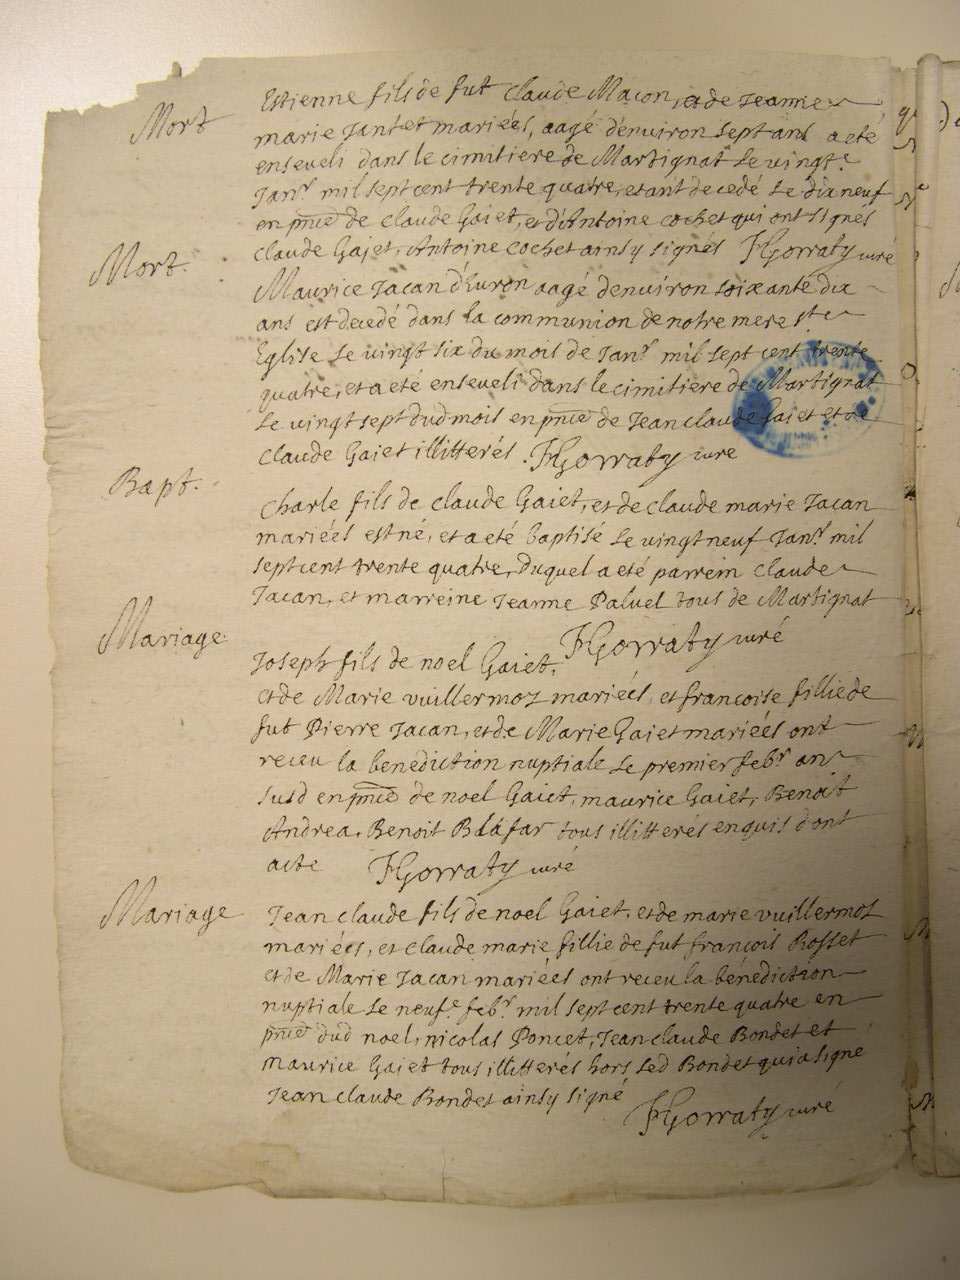 Mort
Estienne fils de fut Claude Maçon, et de Jeanne
marie Jantet mariées, aagé d'environ sept ans a eté
enseveli dans le cimitiere de Martignat le vingte
Janr mil sept cent trente quatre, etant decedé le dix neuf
en pnce de Claude Gaiet, et d'Antoine Cochet qui ont signés
Claude Gajet, Antoine Cochet ainsy signés FGorraty curé
Mort.
Maurice Jacan d'Evron aagé denviron soixante dix
ans est decedé dans la communion de notre mere ste
Eglise le vingt six du mois de Janr mil sept cent trente
quatre, et a eté enseveli dans le cimitiere de Martignat
le vingt sept dud mois en pnce de Jean Claude Gaiet et de
Claude Gaiet illitterés. FGorraty curé
Bapt.
Charle fils de Claude Gaiet, et de Claude marie Jacan
mariéés est né, et a eté baptisé le vingt neuf Janr mil
sept cent trente quatre, Duquel a eté parrein Claude
Jacan, et marreine Jeanne Paluel tous de Martignat
FGorraty curé
Mariage
Joseph fils de noel Gaiet,
et de Marie vuillermoz mariéés, et francoise fillie de
fut Pierre Jacan, et de Marie Gaiet mariéés ont
receu la benediction nuptiale le premier febr an
susd en pnce de noel Gaiet, maurice Gaiet, Benoit
Andrea, Benoit Blafar tous illitterés enquis dont
acte FGorraty curé
Mariage
Jean claude fils de noel Gaiet, et de marie vuillermoz
mariéés, et Claude marie fillie de fut francois Rosset
et de Marie Jacan mariéés ont receu la bénédiction
nuptiale le neufe febr mil sept cent trente quatre en
pnce dud noel, nicolas Poncet, Jean claude Bondet et
Maurice Gaiet tous illitterés hors led Bondet qui a signe
Jean claude Bondet ainsy signé
FGorraty curé